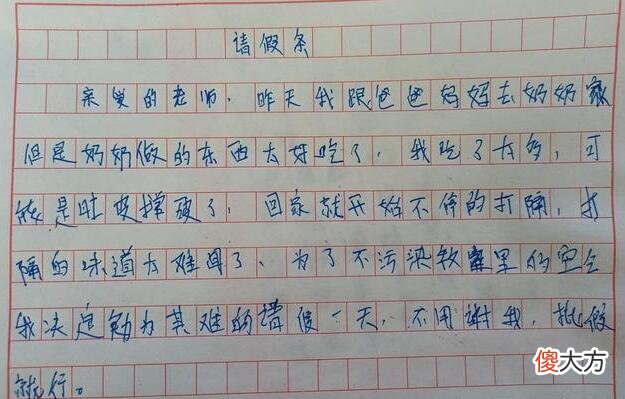 请假条
亲爱的老师，昨天我跟爸爸妈妈去奶奶家
但是奶奶做的东西太好吃了，我吃了太多，可
能是肚皮撑破了，回家就开始不停的打隔，打
隔的味道太难闻了、为了不污染教室里的空气
我决定勉为其难的请假一天，不用谢我，批假
就行。
傻大方